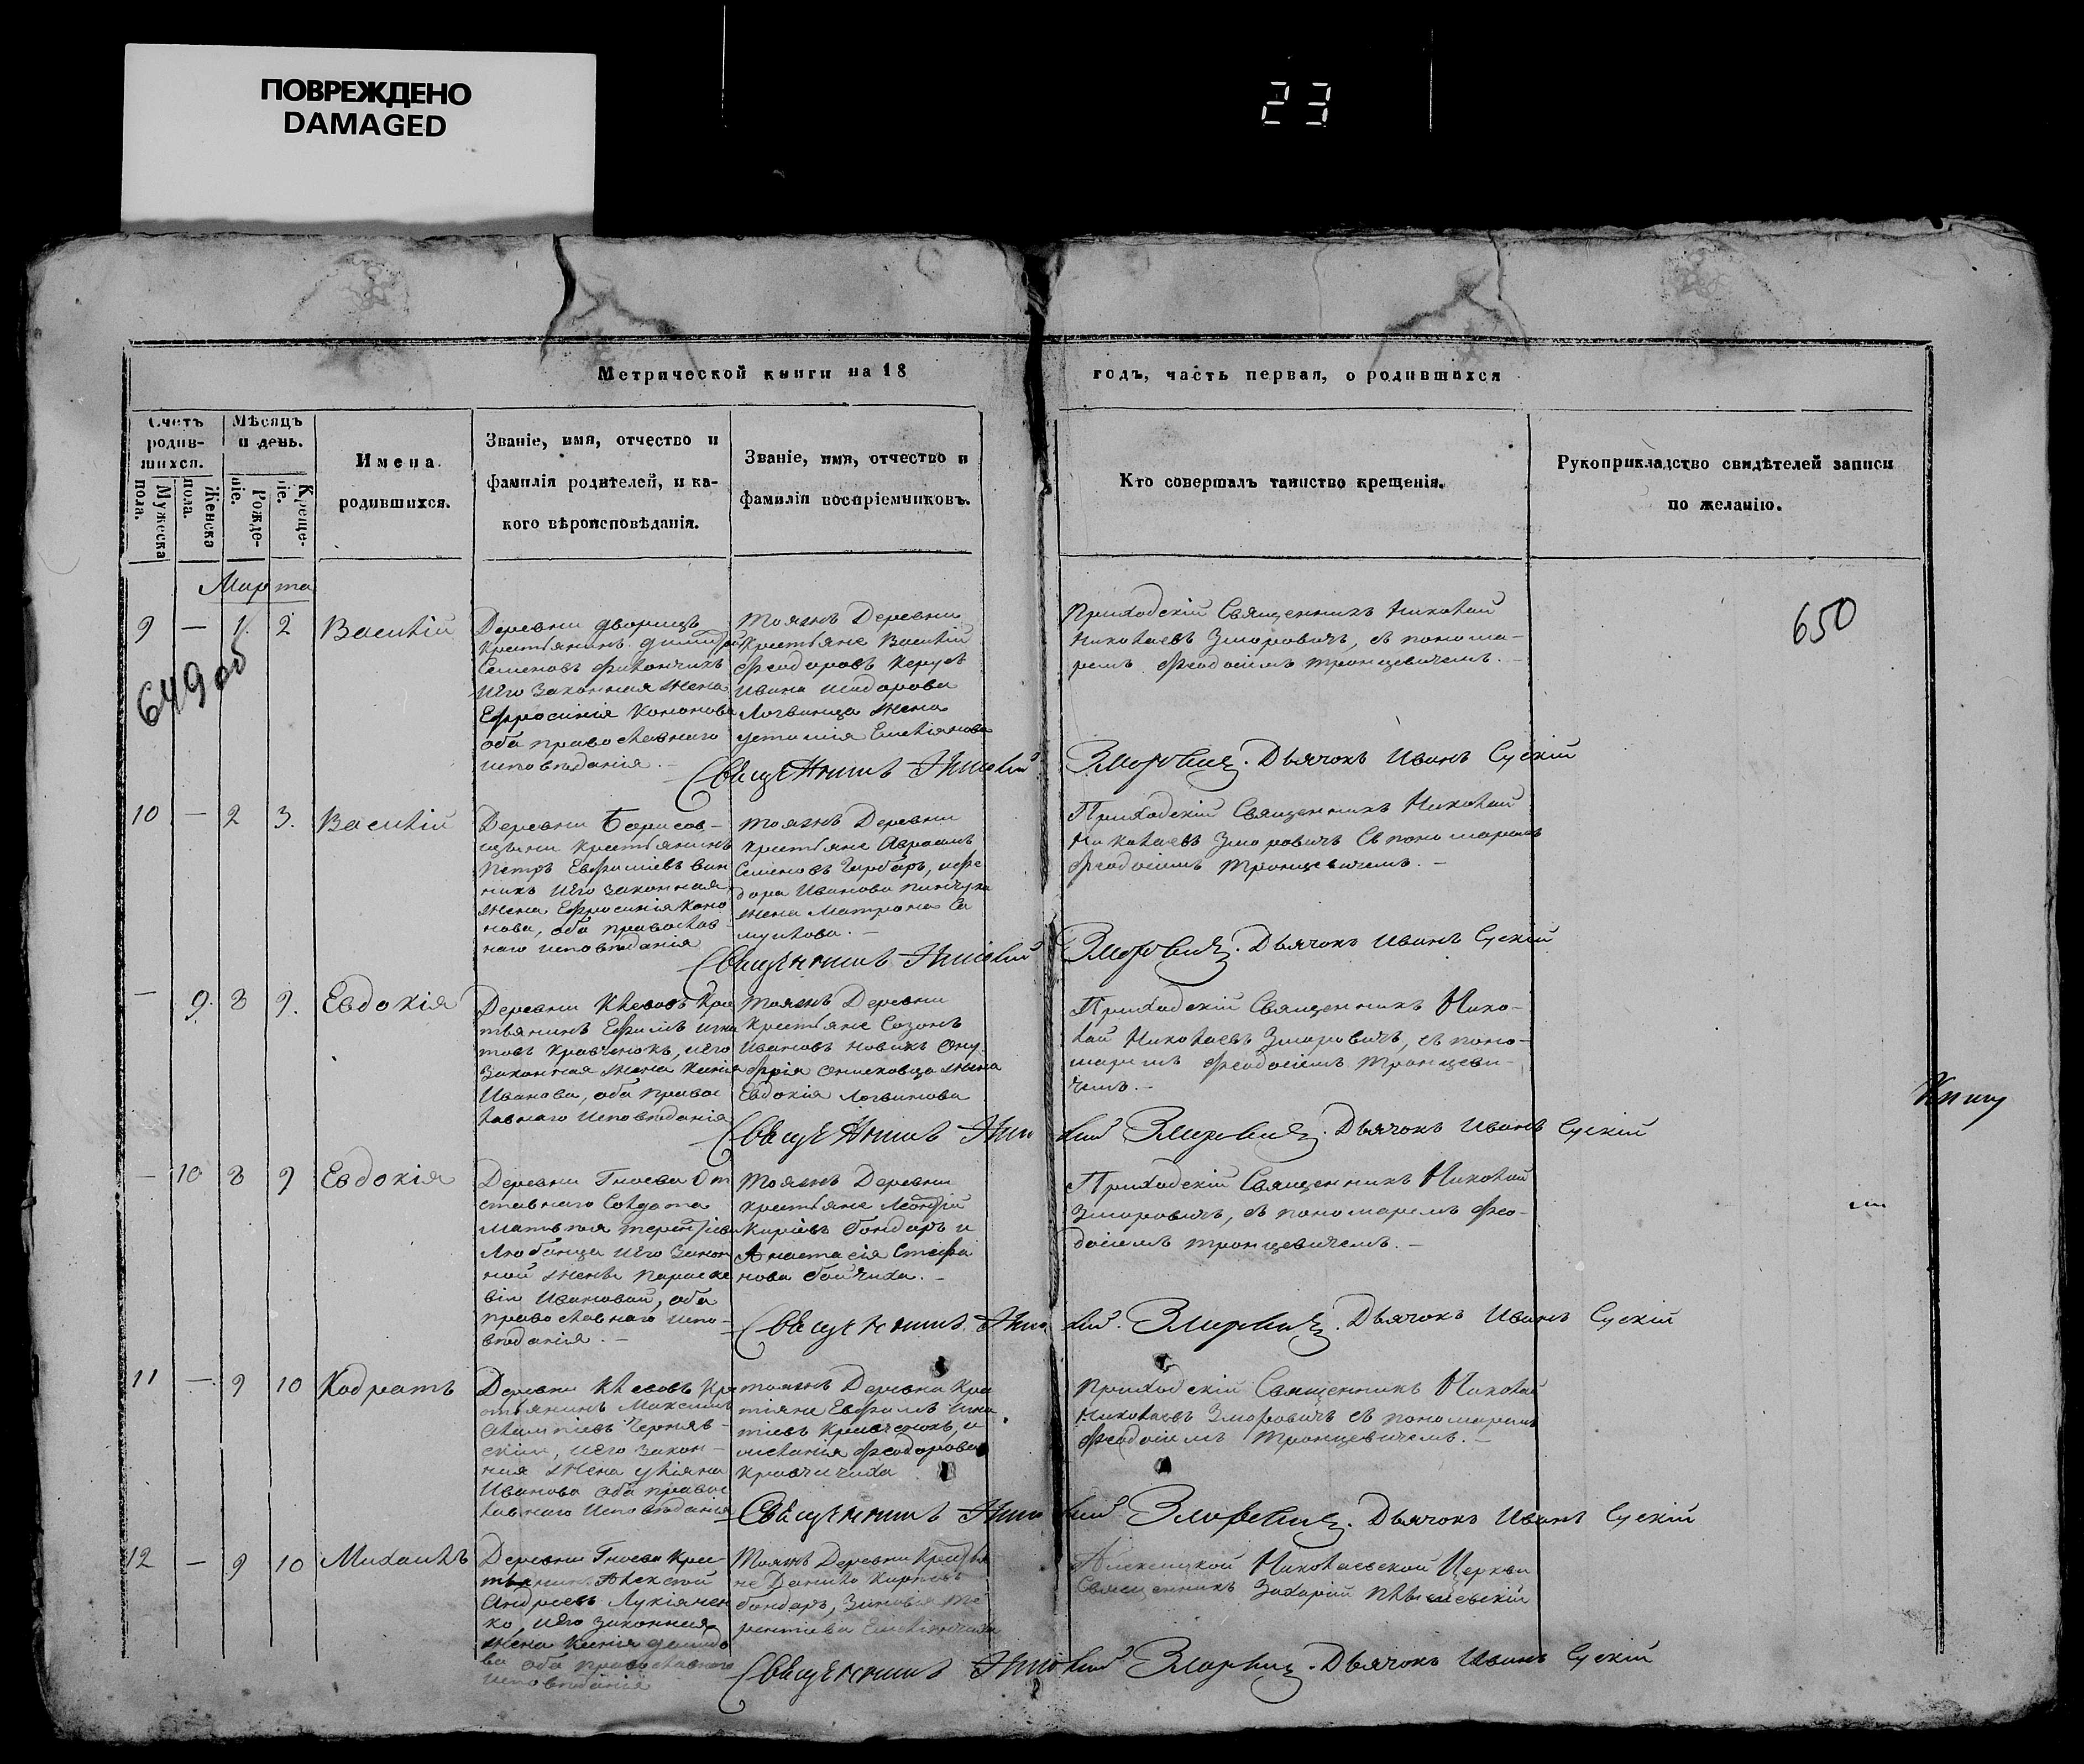 ПОВРЕЖДЕНО
DAMAGED
23
Метрической книги на 18 годъ, часть первая, о родившихся
Счетъ родившихся.
Мужеска пола.
Женска пола.
Мѣсяцъ и день.
Рожденіе.
Крещеніе.
Имена родившихся.
Званіе, имя, отчество и
фамилія родителей, и ка-
кого вѣроисповѣданія.
Званіе, имя, отчество и
фамилія воспріемниковъ.
Кто совершалъ таинство крещенія.
Рукоприкладство свидѣтелей записи
по желанію.
Марта
649 об
650
9 — 1. 2 Василій
Деревни Дворищъ
Крестьянинъ
Семеновъ
его законная жена
Ефросинія Кононова
оба православнаго
исповѣданія.
тояжъ Деревни
Крестьяне Василій
Феодоровъ
Ивана
Логвинца жена
Приходскій Священникъ Николай
Николаевъ Зморовичъ, съ понома-
ремъ Феодосіемъ Тронцевичемъ.
Священникъ Николай Зморовичъ. Дьячокъ Иванъ Сускій
10 — 2 3. Василій
Деревни Борисов-
щины Крестьянинъ
Петръ Евфиміевъ Вин
никъ его законная
жена Ефросинія Коно
нова, оба православ-
наго исповѣданія
тояжъ Деревни
крестьяне Авраамъ
Семеновъ Гарбаръ, и Фе
дора Иванова Пинчука
жена Матрона Са
муилова.
Приходскій Священникъ Николай
Николаевъ Зморовичъ съ пономаремъ
Феодосіемъ Тронцевичемъ.
Священникъ Николай Зморовичъ. Дьячокъ Иванъ Сускій
— 9. 8 9. Евдокія
Деревни Клевовъ Крес
тьянинъ Ефимъ Игна
товъ Кравченокъ, его
Законная жена Ксенія
Иванова, оба правос
лавнаго исповѣданія
тояжъ Деревни
Крестьяне Созонъ
Ивановъ Новикъ Ону
фрія жена
Евдокія Логвинова
Приходскій Священникъ Нико-
лай Николаевъ Зморовичъ, съ поно-
маремъ Феодосіемъ Тронцеви-
чемъ.
Священникъ Николай Зморовичъ. Дьячокъ Иванъ Сускій
— 10 8 9 Евдокія
Деревни Гноева От
ставнаго Солдата
Матвѣя Терентіева
Любанца его закон
ной жены Параске
віи Ивановой, оба
православнаго испо-
вѣданія.
тояжъ Деревни
крестьяне Леонтій
Киріевъ Бондаръ и
Анастасія Стефа
нова
Приходскій Священникъ Николай
Зморовичъ, съ пономаремъ Фео-
досіемъ Тронцевичемъ.
Священникъ Николай Зморовичъ. Дьячокъ Иванъ Сускій
11 — 9 10 Кодратъ
Деревни Клевовъ Кре
стьянинъ Максимъ
Черняв-
скій, его закон-
ная жена Уліяна
Иванова оба правос
лавнаго Исповѣданія
тояжъ Деревни Кре
стьяне Евфимъ Игна
тіевъ Кравченокъ, и
Феодорова
Кравчичиха
Приходскій Священникъ Николай
Николаевъ Зморовичъ съ пономаремъ
Феодосіемъ Тронцевичемъ.
Священникъ Николай Зморовичъ. Дьячокъ Иванъ Сускій
12 — 9 10 Михаилъ
Деревни Гноева Крес-
тьянинъ Алексѣй
Андреевъ Лукіянен
ко, его законная
жена Ксенія
оба православнаго
исповѣданія
Тояжъ Деревни Крестья
не Данило
Бондаръ, Зиновія Те
рентіева
Николаевской Церкви
Священникъ Захарій
Священникъ Николай Зморовичъ. Дьячокъ Иванъ Сускій
Книгу